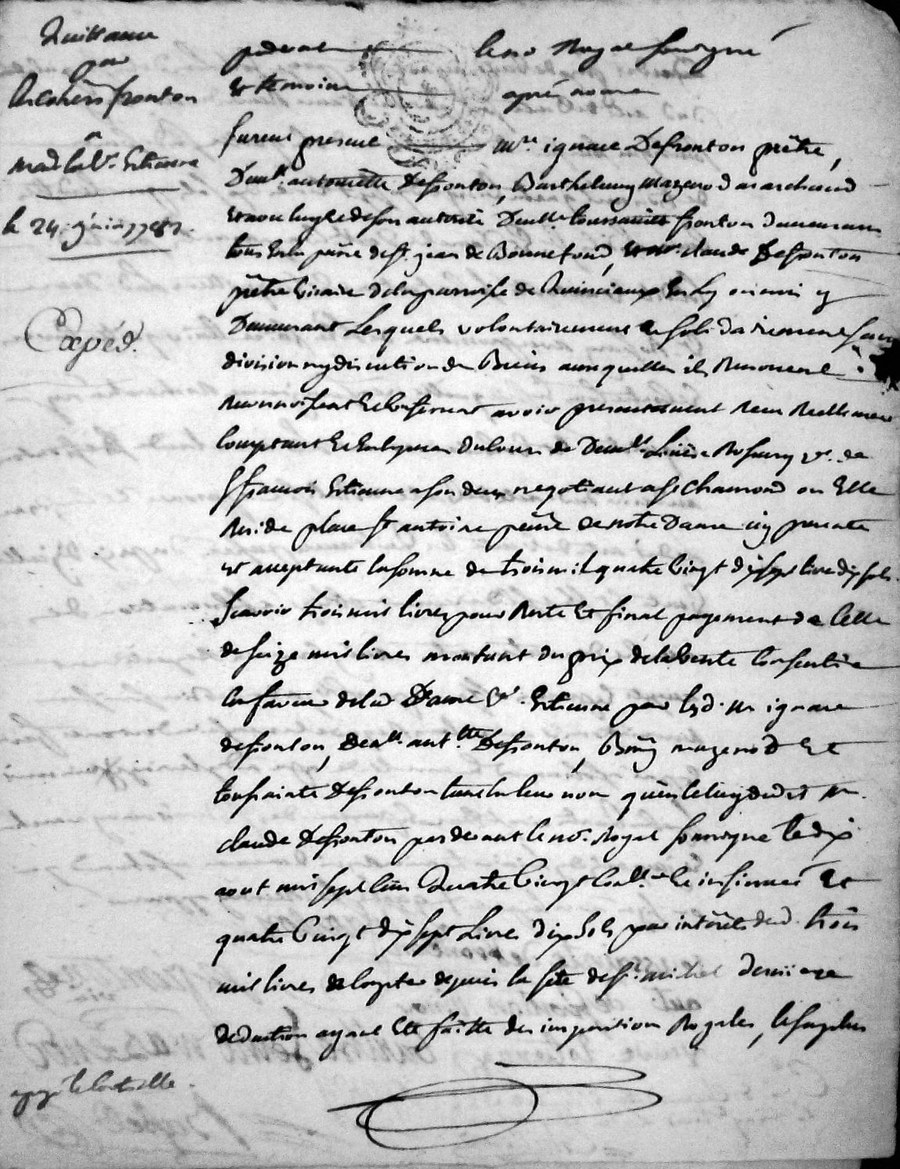 Quittance
par
les cohers fronton
mad.e la v.e Etienne
le 24. juin 1782.
Expéd.
pardevant le no.re Royal soussigné
et temoins après nommé
furent present m.re ignace Defronton prêtre,
Dem.lle antoinette Defronton, Barthelemy Mazenod marchand
et avec luy de son autorité Dem.lle toussainte fronton demeurant
tous en la p.sse de S.t jean de Bonnefond, et m.re claude Defronton
prêtre vicaire de la parroisse de Quincieux en y
Demeurant Lesquels volontairement et solidairement sans
division ny discution de Biens auxquelles ils Renoncent
Reconnoissent et Confessent avoir presentement Receu Reellement
Comptant et en Especes du Cours de Dem.lle v.e de
S. francois Etienne a son deces negotiant a S.t Chamond ou Elle
Reside place S.t antoine p.sse de notre Dame icy presente
et acceptante la somme de trois mil quatre vingt dix sept livre dix sols
Scavoir trois mil livres pour Reste et final payement de Celle
de seize mil livres montant du prix de la vente Consentie
En faveur de lad. Dame v.e Etienne par lesd. m.re ignace
defronton, dem.lle ant.tte Defronton, B.my mazenod et
toussainte Defronton tant en leur nom qu'en celuy dudit m.re
claude Defronton pardevant le no.re Royal soussigné le dix
aout mil sept cens Quatre vingt et
quatre vingt dix sept Livres dix sols pour interêts desd. trois
mil livres de Compte depuis la fête de S.t michel derniere
deduction ayant été faitte des imposition Royales, lesquelles